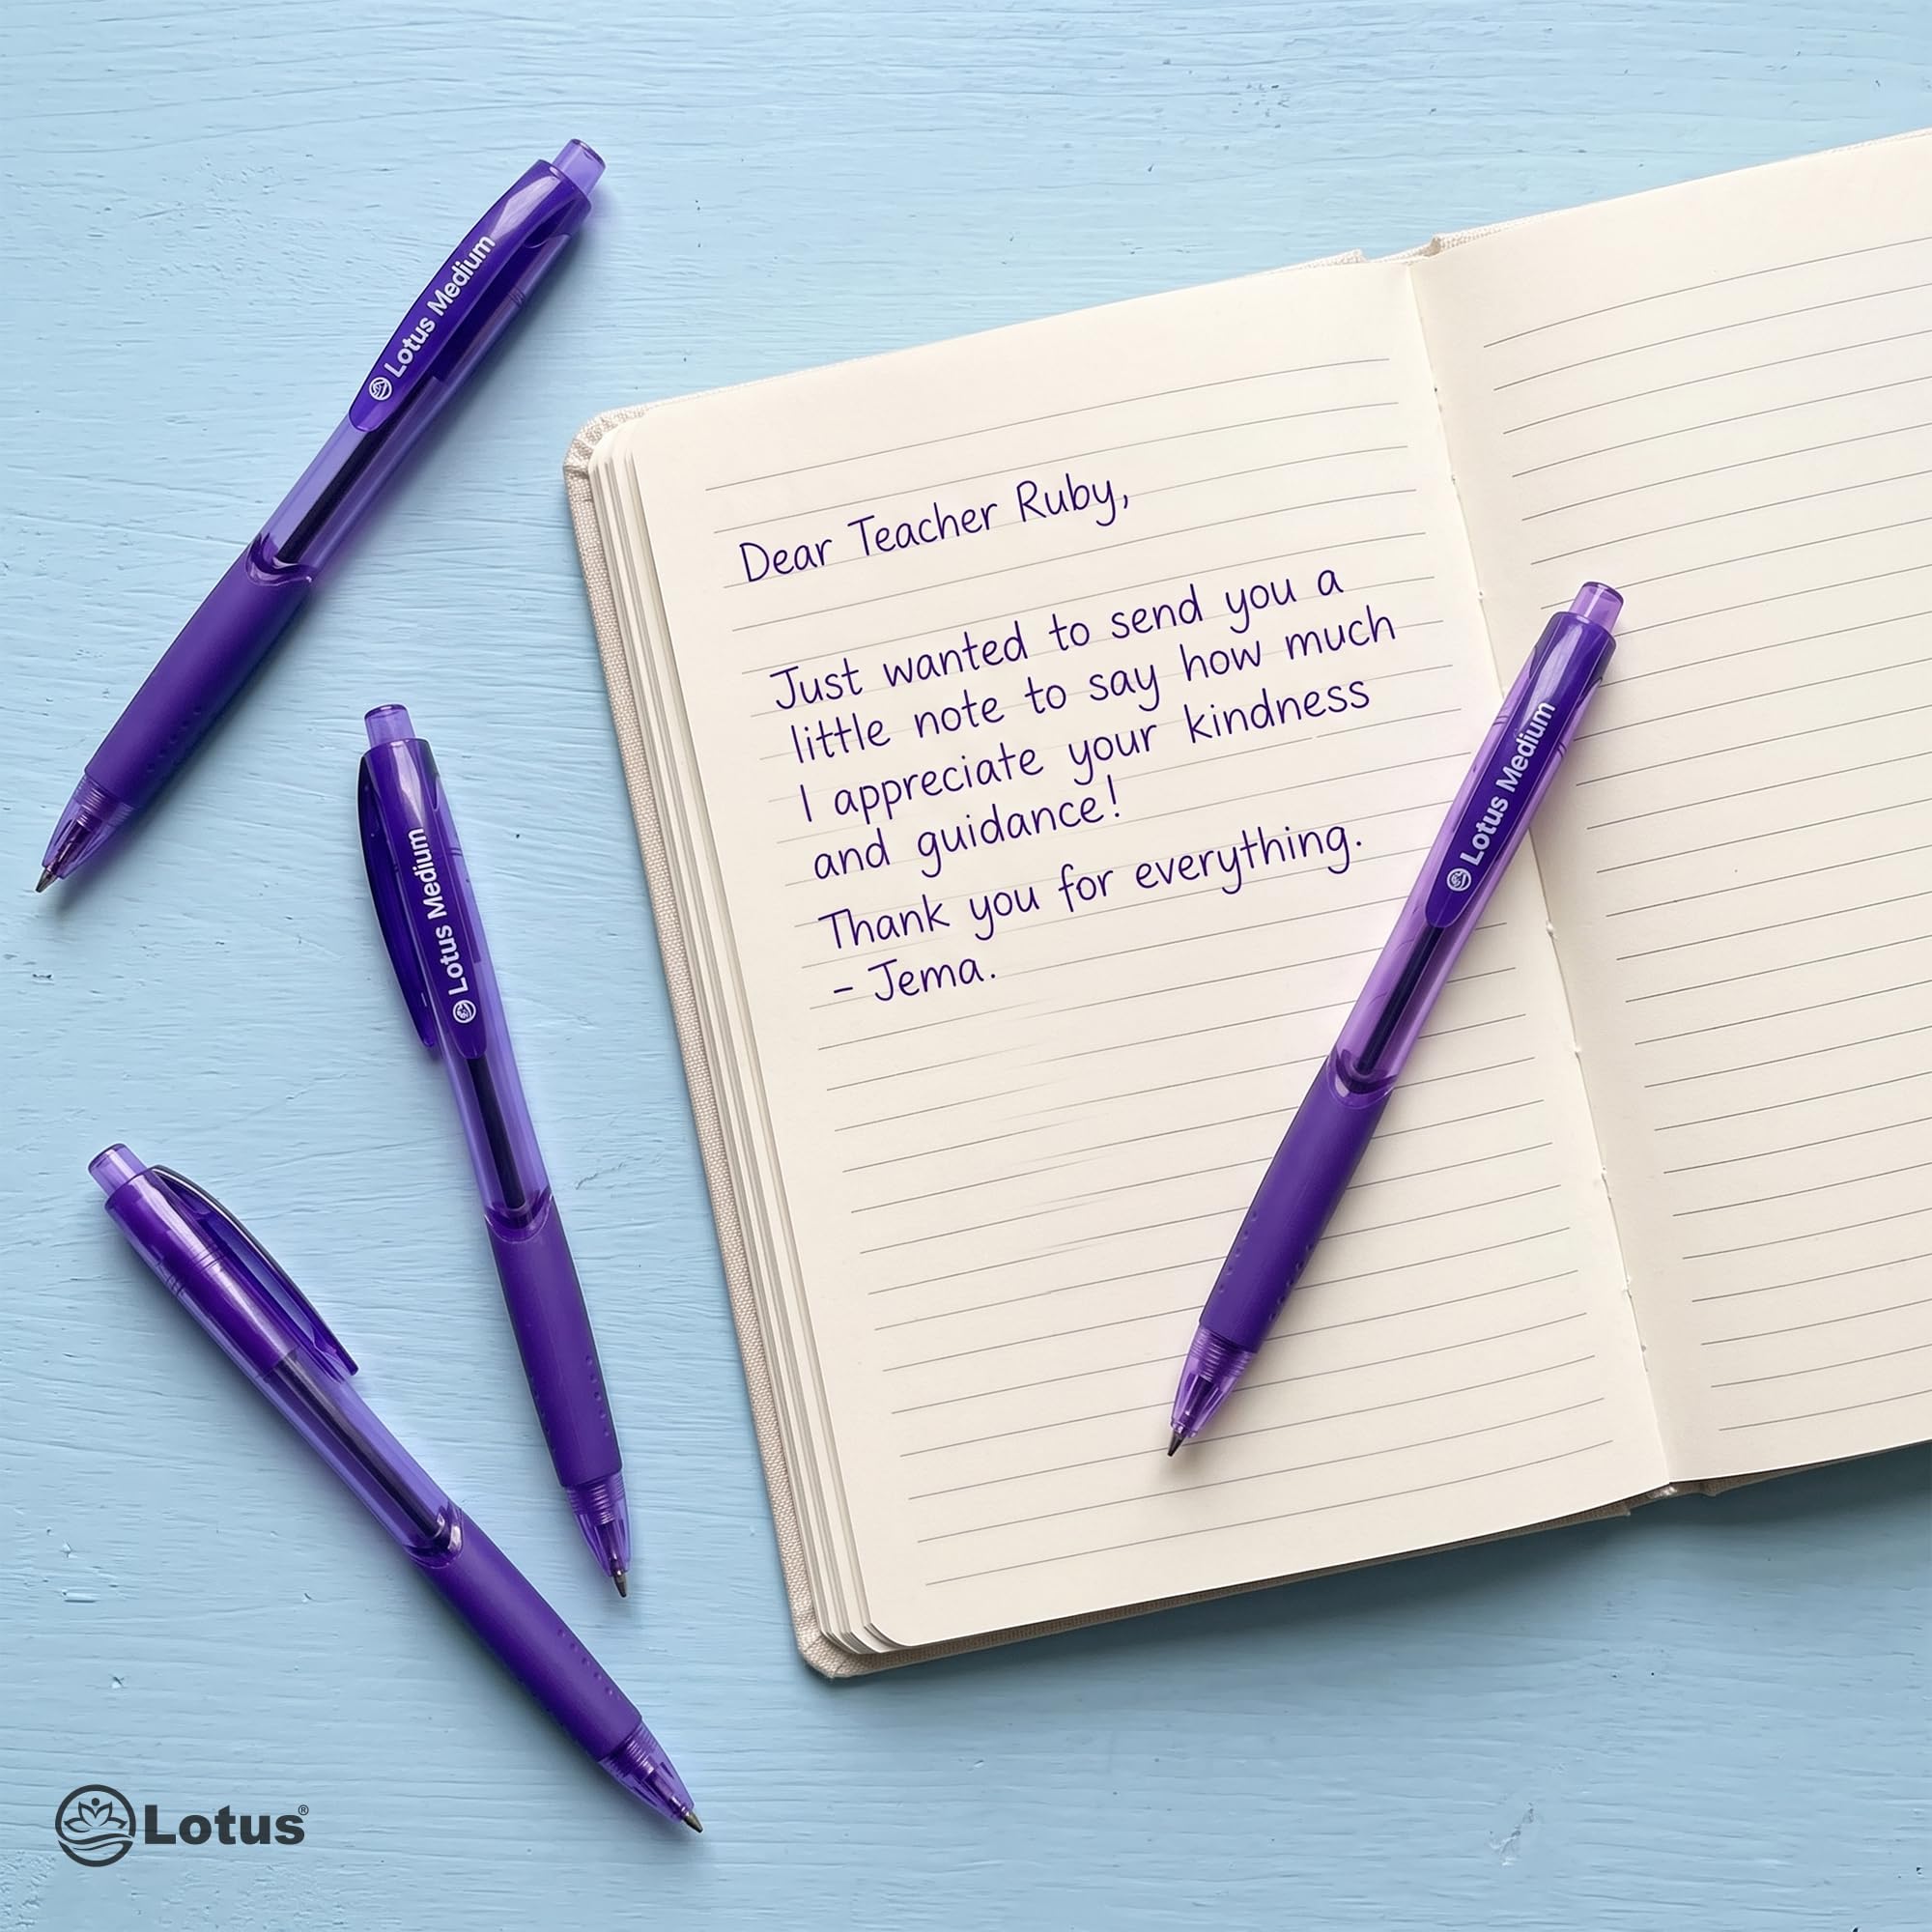 Lotus Medium
Dear Teacher Ruby,
Just wanted to send you a
little note to say how much
I appreciate your kindness
and guidance!
Thank you for everything.
- Jema.
Lotus Medium
Lotus Medium
Lotus®